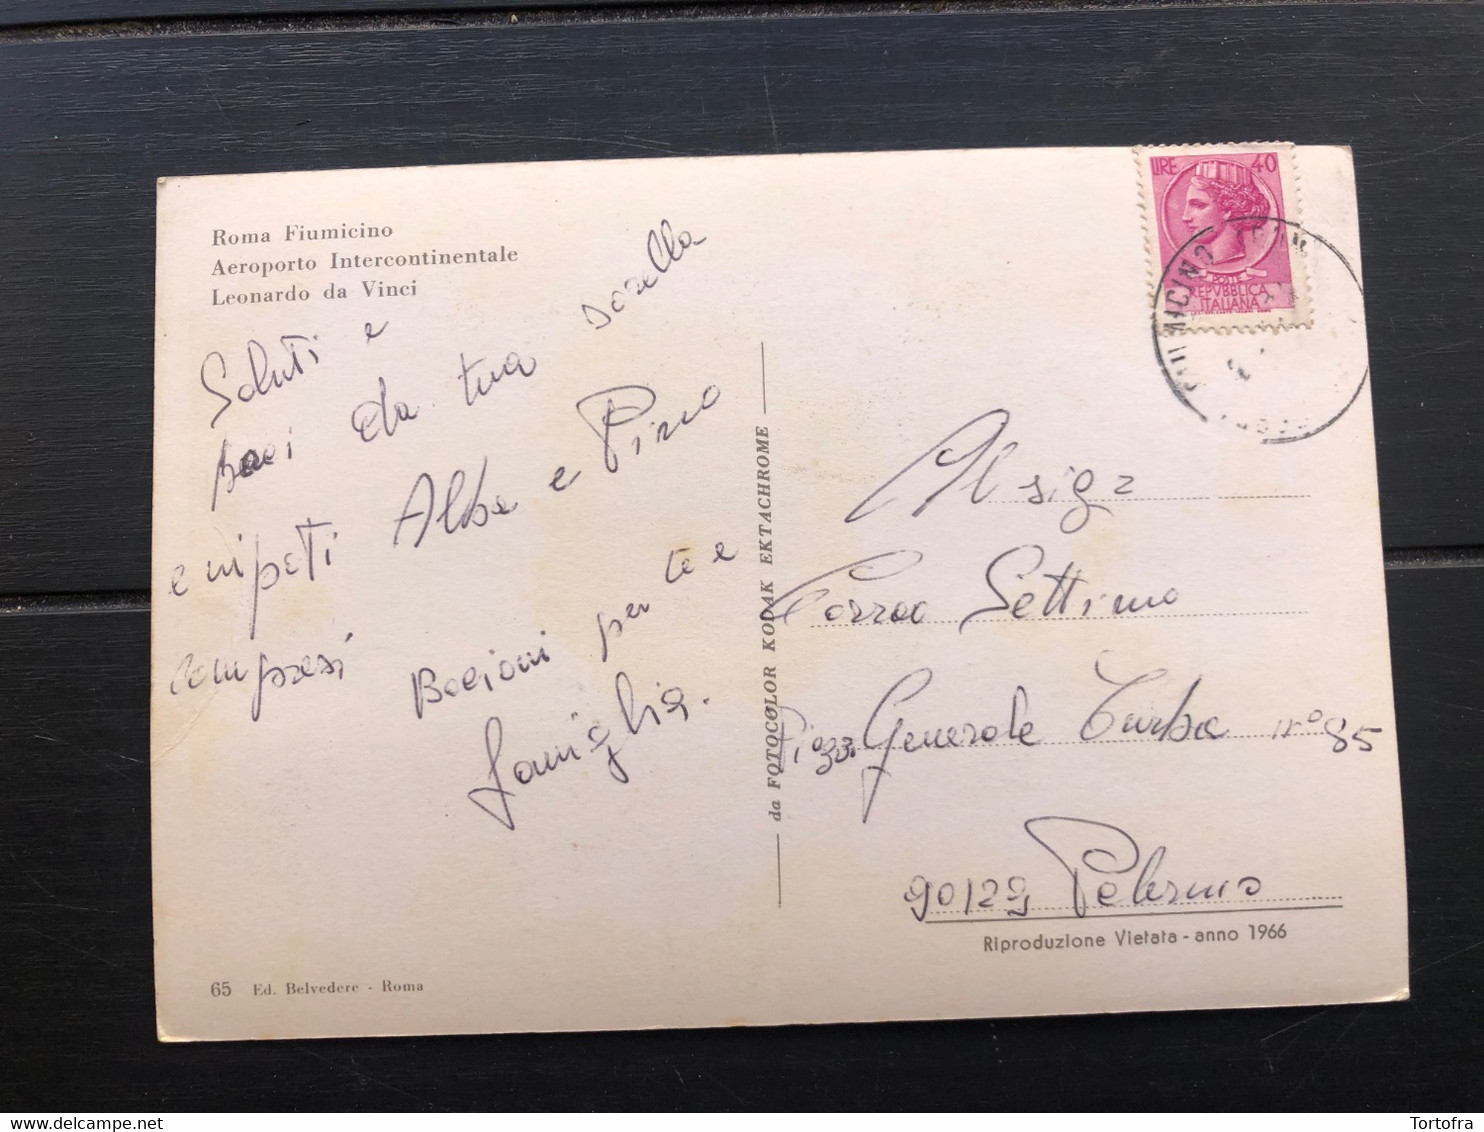 Roma Fiumicino
Aeroporto Intercontinentale
Leonardo da Vinci
Saluti e
baci da tua sorella
e nipoti Alba e Pino
compresi Bacioni per te e
famiglia.
65 Ed. Belvedere - Roma
da FOTOCOLOR KODAK EKTACHROME
LIRE 40
POSTE
REPVBBLICA
ITALIANA
FIUMICINO
Al sig.
Corrao Settimo
Piazza Generale Turba n° 85
90129 Palermo
Riproduzione Vietata - anno 1966
Tortofra
delcampe.net